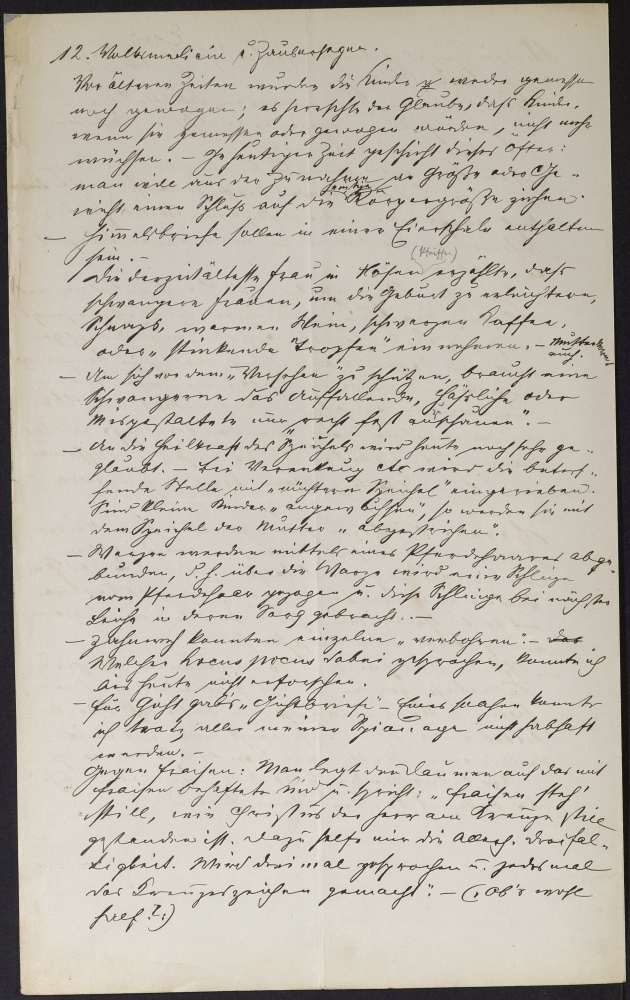 12. Volksmedicin u. Zaubersegen.
Vor älteren Zeiten wurden die Kinder weder gemessen
noch gewogen; es herrschte der Glaube, daß Kinder,
wenn sie gemessen oder gewogen würden, nicht mehr
wüchsen. – In heutiger Zeit geschieht dieses öfter:
man will aus der Zunahme an Größe oder Ge-
wicht einen Schluß auf die Körpergröße ziehen.
– Himmelsbriefe sollen in einer Eierschale enthalten
sein. –
Die derzeit älteste Frau in Höfen (Pfeiffer) erzählte, daß
schwangere Frauen, um die Geburt zu erleichtern,
Schnaps, warmen Wein, schwarzen Kaffee,
oder „stinkende Tropfen" einnehmen. – Mutter
auch.
– Um sich vor dem „Versehen" zu schützen, braucht eine
Schwangere das Auffallende, Häßliche oder
Misgestaltete nur „recht fest anschauen". –
– An die Heilkraft des Speichels wird heute noch sehr ge-
glaubt. – Bei Verrenkung etc wird die betref-
fende Stelle mit „nüchtern Speichel" eingerieben.
Sind kleine Kinder „ ", so werden sie mit
dem Speichel der Mutter „abgestrichen".
– Warzen werden mittels eines Pferdehaares abge-
bunden, d. h. über die Warze wird eine Schlinge
vom Pferdehaar gezogen u. diese Schlinge bei nächster
Leiche in deren Sarg gebracht. –
– Zahnweh konnten einzelne „verbohren". – Das
Welcher hocus pocus dabei gesprochen, konnte ich
bis heute nicht erforschen.
– Für Gicht gab's „Gichtbriefe" – Eines solchen konnte
ich trotz aller meiner Spionage nicht habhaft
werden. –
Gegen Fraisen: Man legt den Daumen auf das mit
Fraisen behaftete Kind u. spricht: „Fraisen steh'
still, wie Christus der Herr am Kreuze still
gestanden ist. Dazu helfe mir die Allerh. Dreifal-
tigkeit. Wird dreimal gesprochen u. jedesmal
das Kreuzeszeichen gemacht". – (: Ob's wohl
half?:)